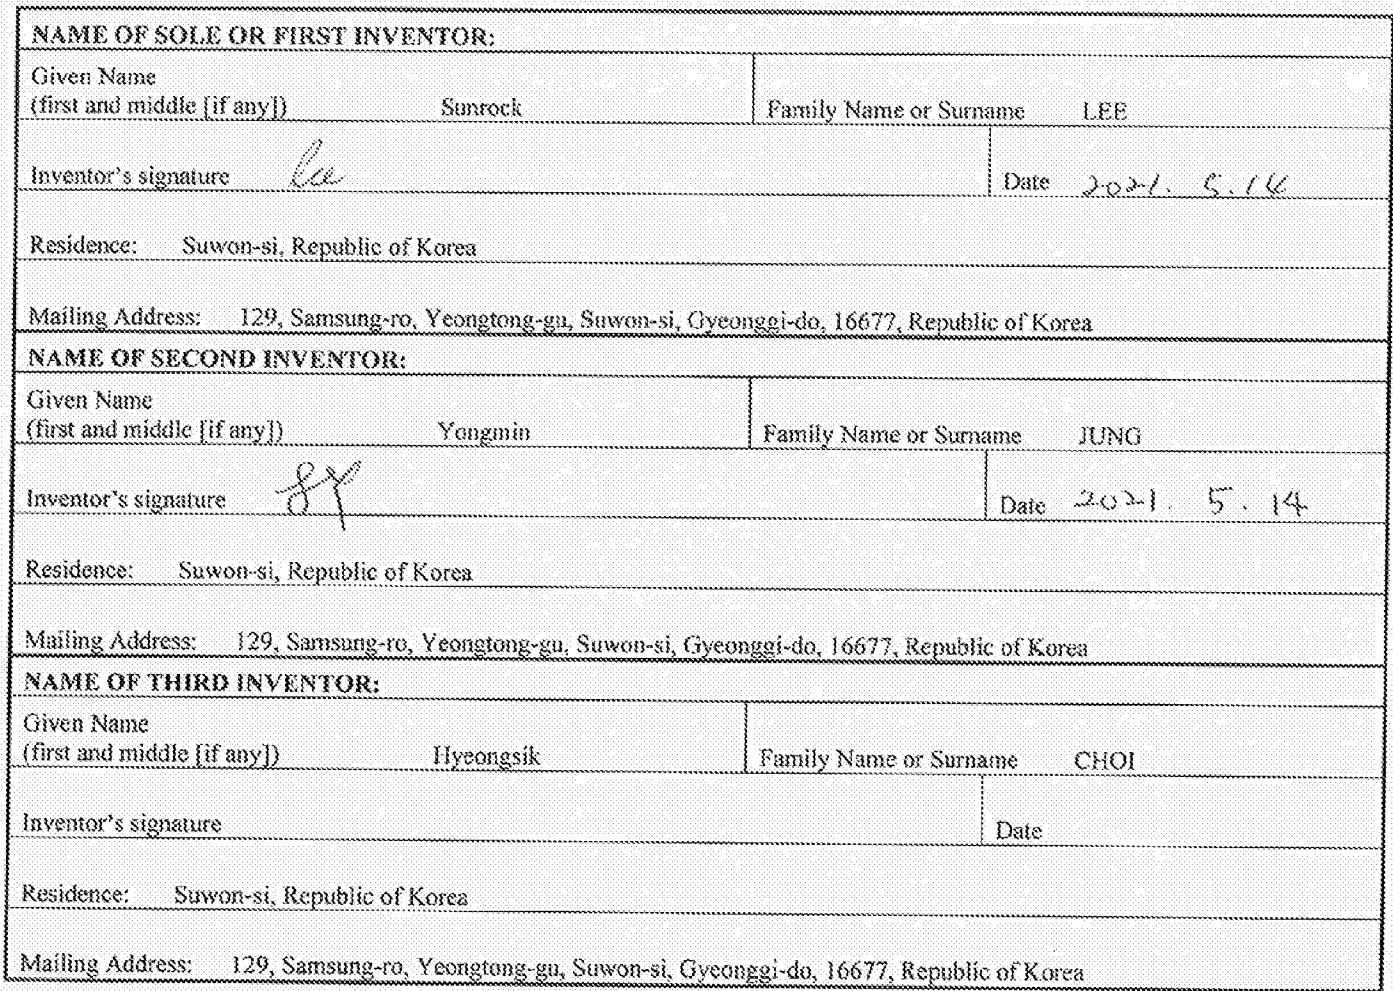 NAME OF SOLE OR FIRST INVENTOR:
Given Name
(first and middle [if any]) Sunrock Family Name or Surname LEE
Inventor's signature Lee Date 2021. 5. 14
Residence: Suwon-si, Republic of Korea
Mailing Address: 129, Samsung-ro, Yeongtong-gu, Suwon-si, Gyeonggi-do, 16677, Republic of Korea
NAME OF SECOND INVENTOR:
Given Name
(first and middle [if any]) Yongmin Family Name or Surname JUNG
Inventor's signature Date 2021. 5. 14
Residence: Suwon-si, Republic of Korea
Mailing Address: 129, Samsung-ro, Yeongtong-gu, Suwon-si, Gyeonggi-do, 16677, Republic of Korea
NAME OF THIRD INVENTOR:
Given Name
(first and middle [if any]) Hyeongsik Family Name or Surname CHOI
Inventor's signature Date
Residence: Suwon-si, Republic of Korea
Mailing Address: 129, Samsung-ro, Yeongtong-gu, Suwon-si, Gyeonggi-do, 16677, Republic of Korea